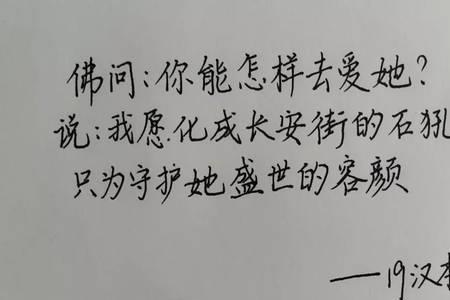 佛问:你能怎样去爱她?
说:我愿化成长安街的石狮
只为守护她盛世的容颜
——19汉李